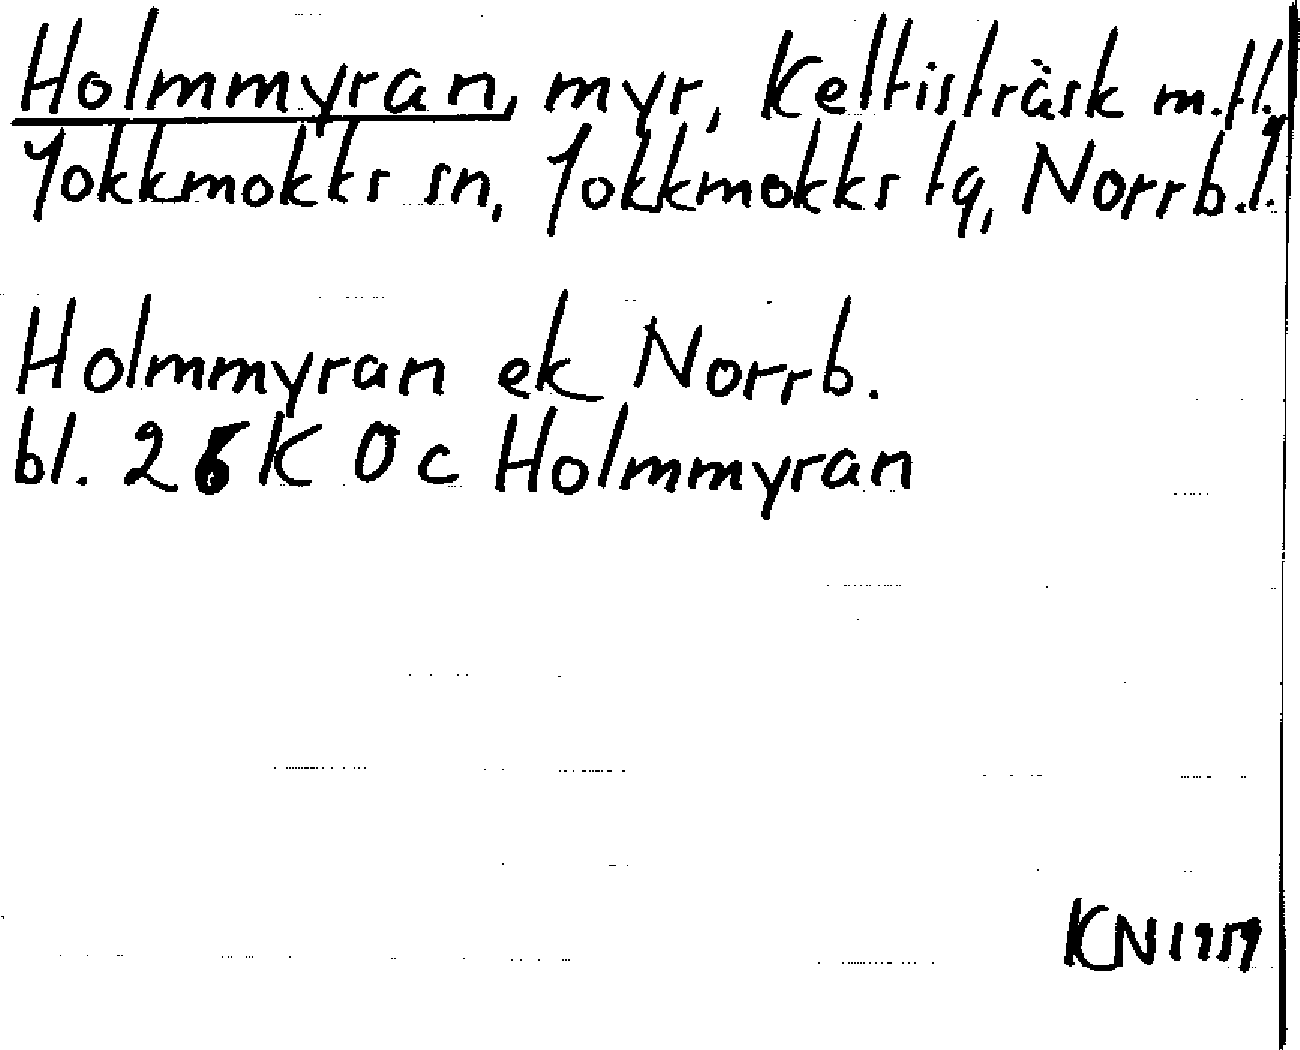 Holmmyran, myr, Keltisträsk m.fl.,
Jokkmokks sn, Jokkmokks tg, Norrb.l.
Holmmyran ek Norrb.
bl. 26 K 0 c Holmmyran
KN 1959